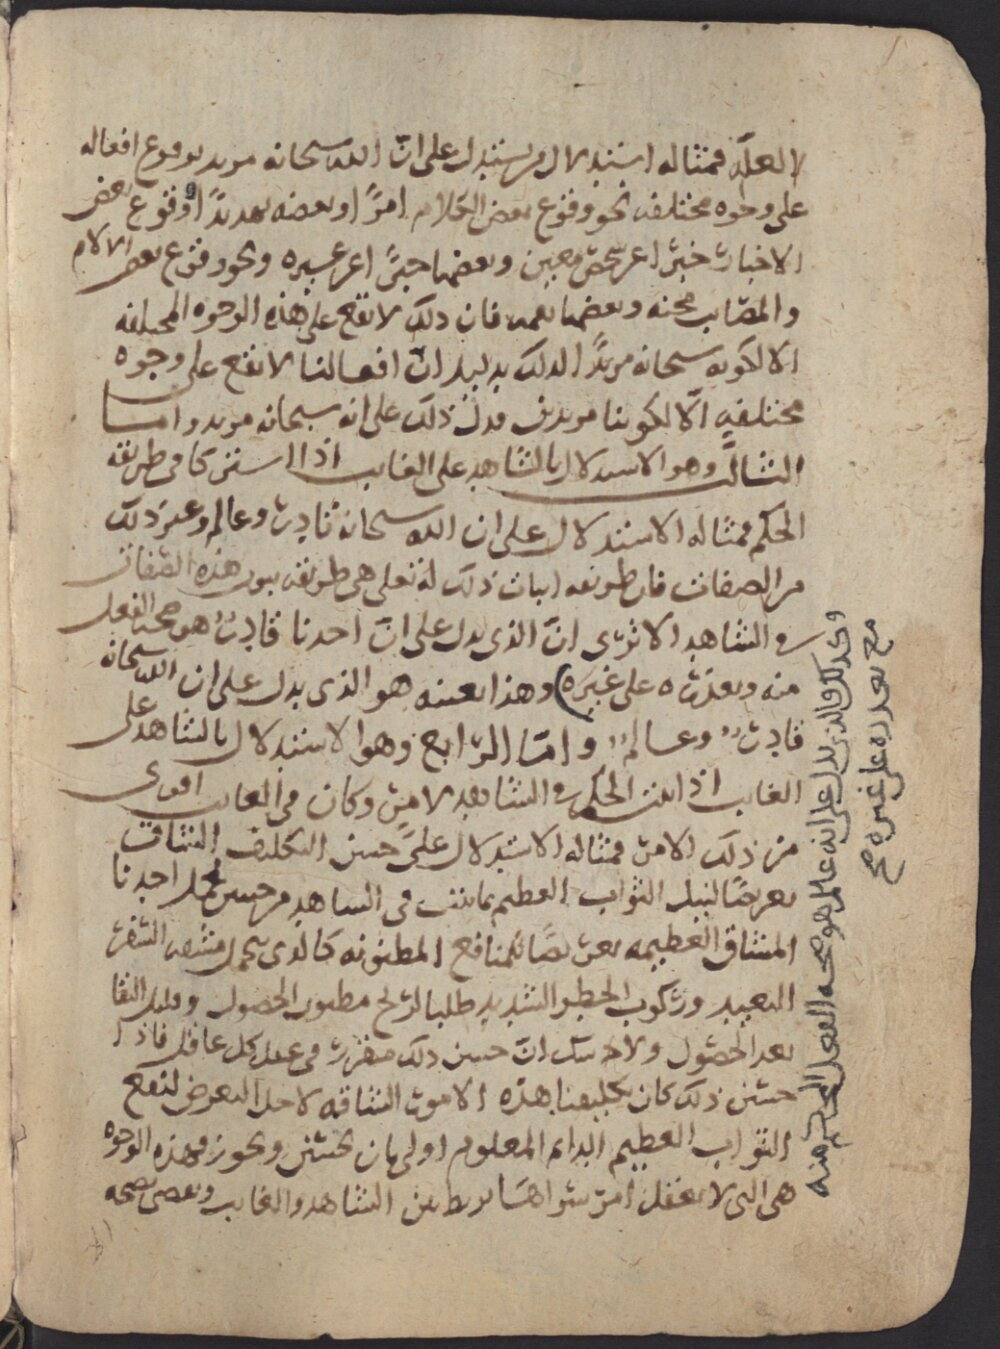 العلة فمثاله استدلال من يستدل على ان الله سبحانه مريد بوقوع افعاله
على وجوه مختلفه نحو وقوع بعض الكلام امرًا وبعضه تهديدًا ووقوع بعض
الاخبار خبرًا عن شخص معين وبعضها خبرًا عن غيره ونحو وقوع بعض الالام
والمصائب محنه وبعضها نعمه فان ذلك لا يقع على هذه الوجوه المختلفه
الا لكونه سبحانه مريدًا لذلك بدليل ان افعالنا لا تقع على وجوه
مختلفه الّا لكوننا مريدين فدل ذلك على انه سبحانه مريد واما
الثالث وهو الاستدلال بالشاهد على الغايب اذا اشتركا في طريقه
الحكم فمثاله الاستدلال على ان الله سبحانه قادر وعالم وغير ذلك
من الصفات فان طريقه اثبات ذلك له تعلى هي طريقه ثبوت هذه الصفات
في الشاهد الا ترى انّ الذي يدل على انّ احدنا قادر هو صحة الفعل
منه وتعذره على غيره وهذا بعينه هو الذي يدل على ان الله سبحانه
قادر وعالم وامّا الرابع وهو الاستدلال بالشاهد على
الغايب اذا ثبت الحكم في الشاهد لامر وكان في الغايب اقوى
من ذلك الامر فمثاله الاستدلال على حسن التكليف الشاق
تعريضًا لنيل الثواب العظيم بما يثبت في الشاهد من حسن تحمل احدنا
المشاق العظيمه تعرضًا للمنافع المظنونه كالذي يتحمل مشقه السفر
البعيد وركوب الخطر الشديد طلبا لربح مظنون الحصول وقليل البقا
بعد الحصول ولا شك انّ حسن ذلك متقرر في عقل كل عاقل فاذا
حسن ذلك كان تكليفنا هذه الامور الشاقه لاجل التعرض لنفع
الثواب العظيم الدايم المعلوم اولى بان يحسن ويجوز فهذه الوجوه
هي التي لا يعقل امر سواها يربط بين الشاهد والغايب ويقضي بصحه
وكذلك فالذي يدل على انه عالم هو صحه الفعل المحكم منه
مع تعذره على غيره صح